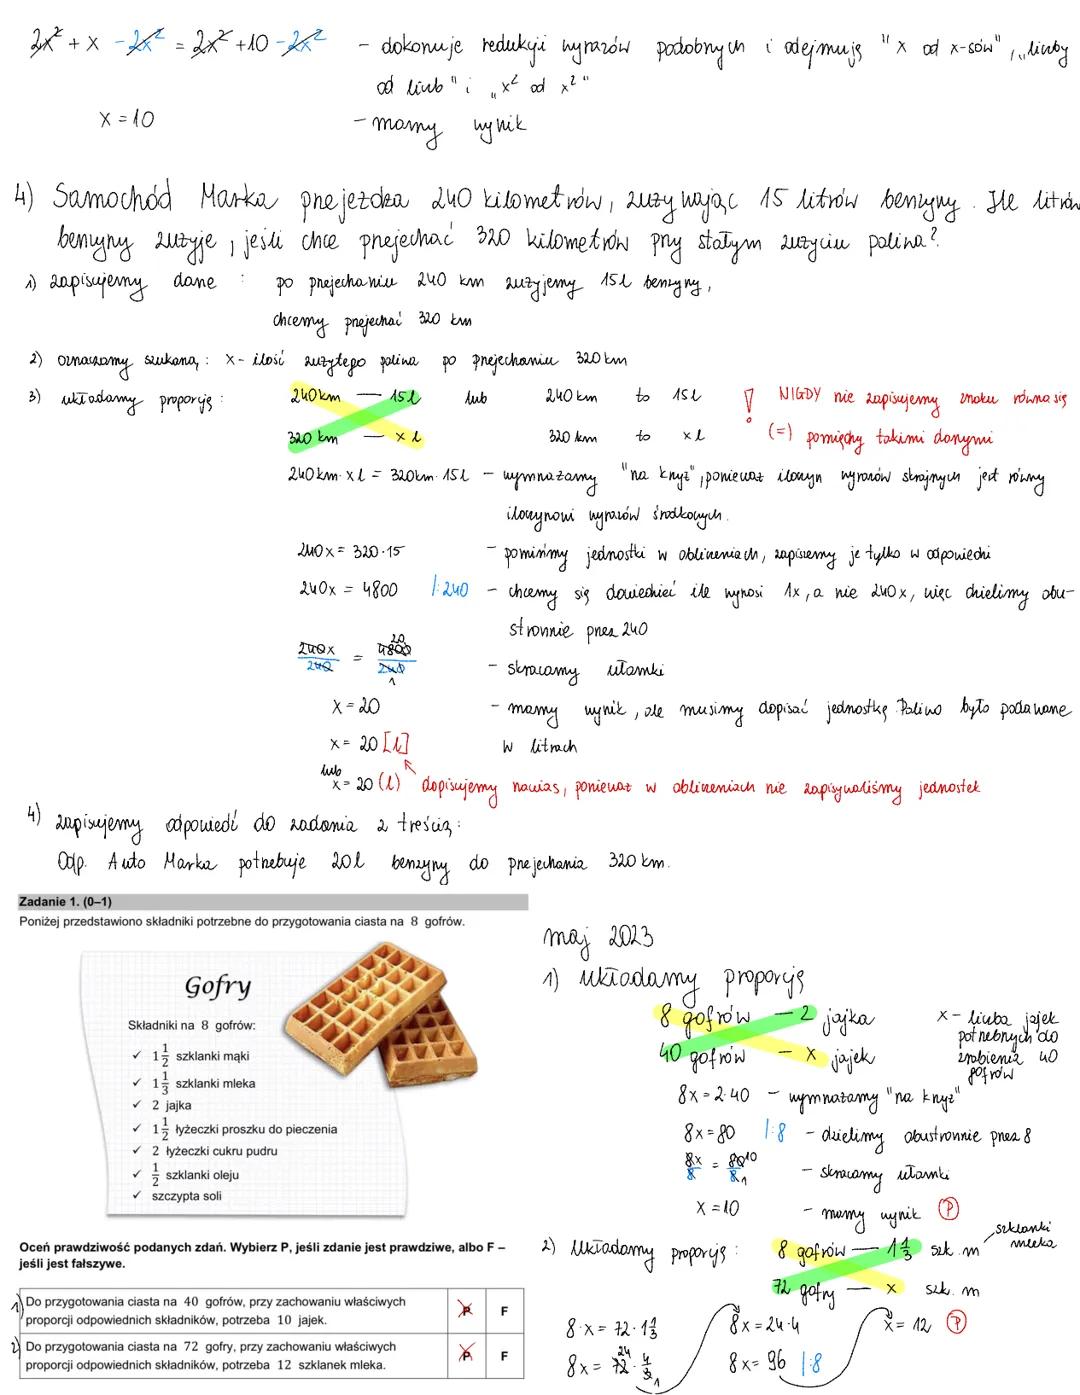 2x² + x - 2x² = 2x² + 10 - 2x² - dokonuję redukcji wyrazów podobnych i odejmuję "x od x-sów", „liczby
od liczb" i „x² od x²"
x = 10 - mamy wynik
4) Samochód Marka przejeżdża 240 kilometrów, zużywając 15 litrów benzyny. Ile litrów
benzyny zużyje, jeśli chce przejechać 320 kilometrów przy stałym zużyciu paliwa?
1) zapisujemy dane : po przejechaniu 240 km zużyjemy 15l benzyny,
chcemy przejechać 320 km
2) oznaczamy szukaną : x - ilość zużytego paliwa po przejechaniu 320 km
3) układamy proporcję : 240km — 15l lub 240 km to 15l ! NIGDY nie zapisujemy znaku równa się
320 km — x l 320 km to x l (=) pomiędzy takimi danymi
240km · x l = 320km · 15l - wymnażamy "na krzyż", ponieważ iloczyn wyrazów skrajnych jest równy
iloczynowi wyrazów środkowych.
240x = 320·15 - pomińmy jednostki w obliczeniach, zapiszemy je tylko w odpowiedzi
240x = 4800 /:240 - chcemy się dowiedzieć ile wynosi 1x, a nie 240x, więc dzielimy obu-
stronnie przez 240
240x/240 = 4800/240 20 1 - skracamy ułamki
x = 20 - mamy wynik, ale musimy dopisać jednostkę. Paliwo było podawane
x = 20 [l] w litrach
lub
x = 20 (l) dopisujemy nawias, ponieważ w obliczeniach nie zapisywaliśmy jednostek
4) zapisujemy odpowiedź do zadania z treścią :
Odp. Auto Marka potrzebuje 20l benzyny do przejechania 320 km.
Zadanie 1. (0–1)
Poniżej przedstawiono składniki potrzebne do przygotowania ciasta na 8 gofrów.
Gofry
Składniki na 8 gofrów:
✓ 1 1/2 szklanki mąki
✓ 1 1/3 szklanki mleka
✓ 2 jajka
✓ 1 1/2 łyżeczki proszku do pieczenia
✓ 2 łyżeczki cukru pudru
✓ 1/2 szklanki oleju
✓ szczypta soli
Oceń prawdziwość podanych zdań. Wybierz P, jeśli zdanie jest prawdziwe, albo F –
jeśli jest fałszywe.
1) Do przygotowania ciasta na 40 gofrów, przy zachowaniu właściwych
proporcji odpowiednich składników, potrzeba 10 jajek. P F
2) Do przygotowania ciasta na 72 gofry, przy zachowaniu właściwych
proporcji odpowiednich składników, potrzeba 12 szklanek mleka. P F
maj 2023
1) układamy proporcję
8 gofrów — 2 jajka
40 gofrów — x jajek
x - liczba jajek
potrzebnych do
zrobienia 40
gofrów
8x = 2·40 - wymnażamy "na krzyż"
8x = 80 /:8 - dzielimy obustronnie przez 8
8x/8 = 80/8 10 1 - skracamy ułamki
x = 10 - mamy wynik P
2) Układamy proporcję : 8 gofrów — 1 1/3 szk. m szklanki
mleka
72 gofry — x szk. m
8·x = 72·1 1/3
8x = 72 · 4/3 24 1
8x = 24·4
8x = 96 /:8
x = 12 P